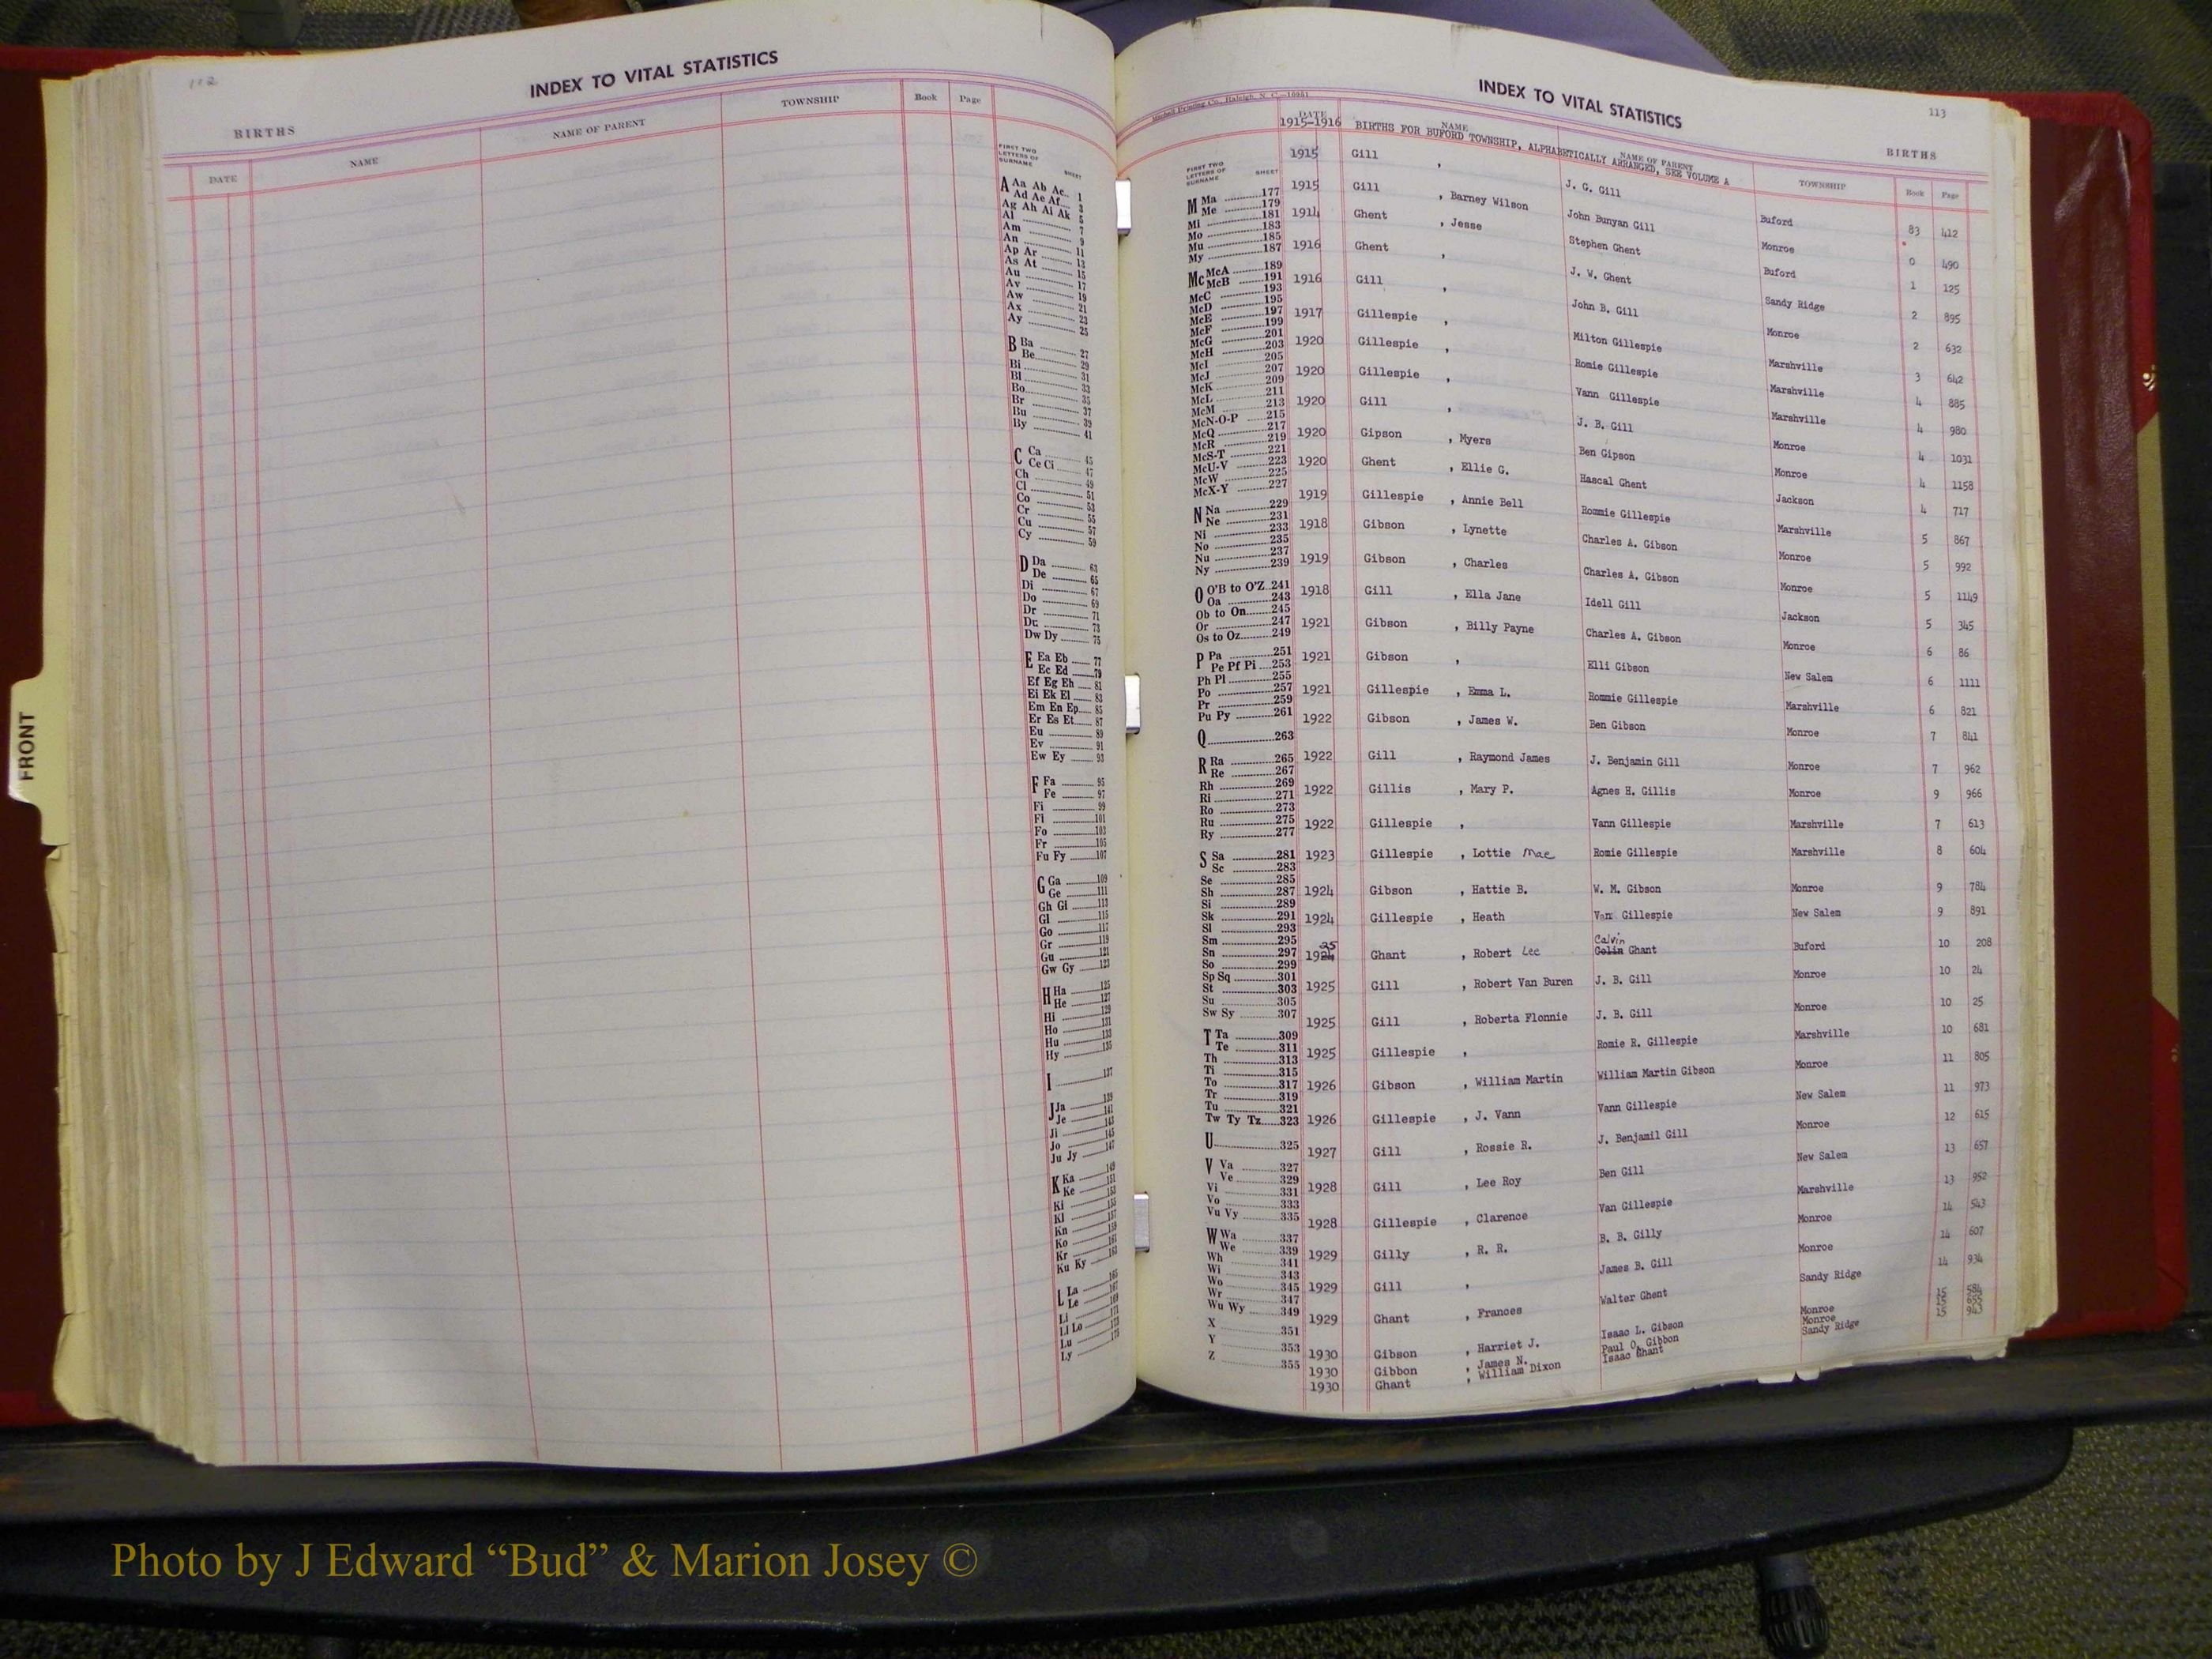 112
INDEX TO VITAL STATISTICS
BIRTHS
DATE NAME NAME OF PARENT TOWNSHIP Book Page
FIRST TWO LETTERS OF SURNAME SHEET
A Aa Ab Ac 1
Ad Ae Af 3
Ag Ah Ai Ak 5
Al 7
Am 9
An 11
Ap Ar 13
As At 15
Au 17
Av 19
Aw 21
Ax 23
Ay 25
B Ba 27
Be 29
Bi 31
Bl 33
Bo 35
Br 37
Bu 39
By 41
C Ca 45
Ce Ci 47
Ch 49
Cl 51
Co 53
Cr 55
Cu 57
Cy 59
D Da 63
De 65
Di 67
Do 69
Dr 71
Du 73
Dw Dy 75
E Ea Eb 77
Ec Ed 79
Ef Eg Eh 81
Ei Ek El 83
Em En Ep 85
Er Es Et 87
Eu 89
Ev 91
Ew Ey 93
F Fa 95
Fe 97
Fi 99
Fl 101
Fo 103
Fr 105
Fu Fy 107
G Ga 109
Ge 111
Gh Gi 113
Gl 115
Go 117
Gr 119
Gu 121
Gw Gy 123
H Ha 125
He 127
Hi 129
Ho 131
Hu 133
Hy 135
I 137
J Ja 139
Je 141
Ji 143
Jo 145
Ju Jy 147
K Ka 149
Ke 151
Ki 153
Kl 155
Kn 157
Ko 159
Kr 161
Ku Ky 163
L La 165
Le 167
Li 169
Ll Lo 171
Lu 173
Ly 175
FRONT
Mitchell Printing Co., Raleigh, N. C.—16851
INDEX TO VITAL STATISTICS
113
BIRTHS
DATE NAME NAME OF PARENT TOWNSHIP Book Page
1915-1916 BIRTHS FOR BUFORD TOWNSHIP, ALPHABETICALLY ARRANGED, SEE VOLUME A
FIRST TWO LETTERS OF SURNAME SHEET
M Ma 177
Me 179
Mi 181
Mo 183
Mu 185
My 187
Mc McA 189
McB 191
McC 193
McD 195
McE 197
McF 199
McG 201
McH 203
McI 205
McJ 207
McK 209
McL 211
McM 213
McN-O-P 215
McQ 217
McR 219
McS-T 221
McU-V 223
McW 225
McX-Y 227
N Na 229
Ne 231
Ni 233
No 235
Nu 237
Ny 239
O O'B to O'Z 241
Oa 243
Ob to On 245
Or 247
Os to Oz 249
P Pa 251
Pe Pf Pi 253
Ph Pl 255
Po 257
Pr 259
Pu Py 261
Q 263
R Ra 265
Re 267
Rh 269
Ri 271
Ro 273
Ru 275
Ry 277
S Sa 281
Sc 283
Se 285
Sh 287
Si 289
Sk 291
Sl 293
Sm 295
Sn 297
So 299
Sp Sq 301
St 303
Su 305
Sw Sy 307
T Ta 309
Te 311
Th 313
Ti 315
To 317
Tr 319
Tu 321
Tw Ty Tz 323
U 325
V Va 327
Ve 329
Vi 331
Vo 333
Vu Vy 335
W Wa 337
We 339
Wh 341
Wi 343
Wo 345
Wr 347
Wu Wy 349
X 351
Y 353
Z 355
1915 Gill , J. G. Gill Buford 83 412
1915 Gill , Barney Wilson John Bunyan Gill Monroe 0 490
1914 Ghent , Jesse Stephen Ghent Buford 1 125
1916 Ghent , J. W. Ghent Sandy Ridge 2 895
1916 Gill , John B. Gill Monroe 2 632
1917 Gillespie , Milton Gillespie Marshville 3 642
1920 Gillespie , Romie Gillespie Marshville 4 885
1920 Gillespie , Vann Gillespie Marshville 4 980
1920 Gill , J. B. Gill Monroe 4 1031
1920 Gipson , Myers Ben Gipson Monroe 4 1158
1920 Ghent , Ellie G. Hascal Ghent Jackson 4 717
1919 Gillespie , Annie Bell Rommie Gillespie Marshville 5 867
1918 Gibson , Lynette Charles A. Gibson Monroe 5 992
1919 Gibson , Charles Charles A. Gibson Monroe 5 1149
1918 Gill , Ella Jane Idell Gill Jackson 5 345
1921 Gibson , Billy Payne Charles A. Gibson Monroe 6 86
1921 Gibson , Elli Gibson New Salem 6 1111
1921 Gillespie , Emma L. Rommie Gillespie Marshville 6 821
1922 Gibson , James W. Ben Gibson Monroe 7 841
1922 Gill , Raymond James J. Benjamin Gill Monroe 7 962
1922 Gillis , Mary P. Agnes H. Gillis Monroe 9 966
1922 Gillespie , Vann Gillespie Marshville 7 613
1923 Gillespie , Lottie Mae Romie Gillespie Marshville 8 604
1924 Gibson , Hattie B. W. M. Gibson Monroe 9 784
1924 Gillespie , Heath Van Gillespie New Salem 9 891
25 Calvin
1924 Ghant , Robert Lee Colin Ghant Buford 10 208
1925 Gill , Robert Van Buren J. B. Gill Monroe 10 24
1925 Gill , Roberta Flonnie J. B. Gill Monroe 10 25
1925 Gillespie , Romie R. Gillespie Marshville 10 681
1926 Gibson , William Martin William Martin Gibson Monroe 11 805
1926 Gillespie , J. Vann Vann Gillespie New Salem 11 973
1927 Gill , Rossie R. J. Benjamil Gill Monroe 12 615
1928 Gill , Lee Roy Ben Gill New Salem 13 657
1928 Gillespie , Clarence Van Gillespie Marshville 13 952
1929 Gilly , R. R. B. B. Gilly Monroe 14 543
1929 Gill , James B. Gill Monroe 14 607
1929 Ghant , Frances Walter Ghent Sandy Ridge 14 934
1930 Gibson , Harriet J. Isaac L. Gibson Monroe 15 584
1930 Gibbon , James N. Paul O. Gibbon Monroe 15 655
1930 Ghant , William Dixon Isaac Ghant Sandy Ridge 15 943
Photo by J Edward “Bud” & Marion Josey ©